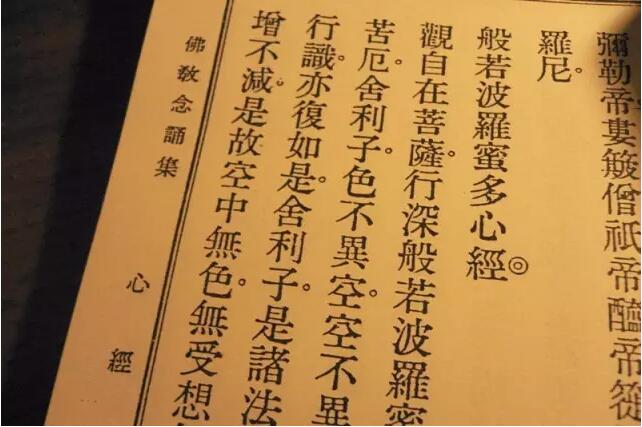 彌勒帝婁簸僧祇帝醯帝簁
羅尼。
般若波羅蜜多心經◎
觀自在菩薩。行深般若波羅蜜
苦厄。舍利子。色不異空。空不異
行識。亦復如是。舍利子。是諸法
增不減。是故空中無色。無受想
佛教念誦集
心經